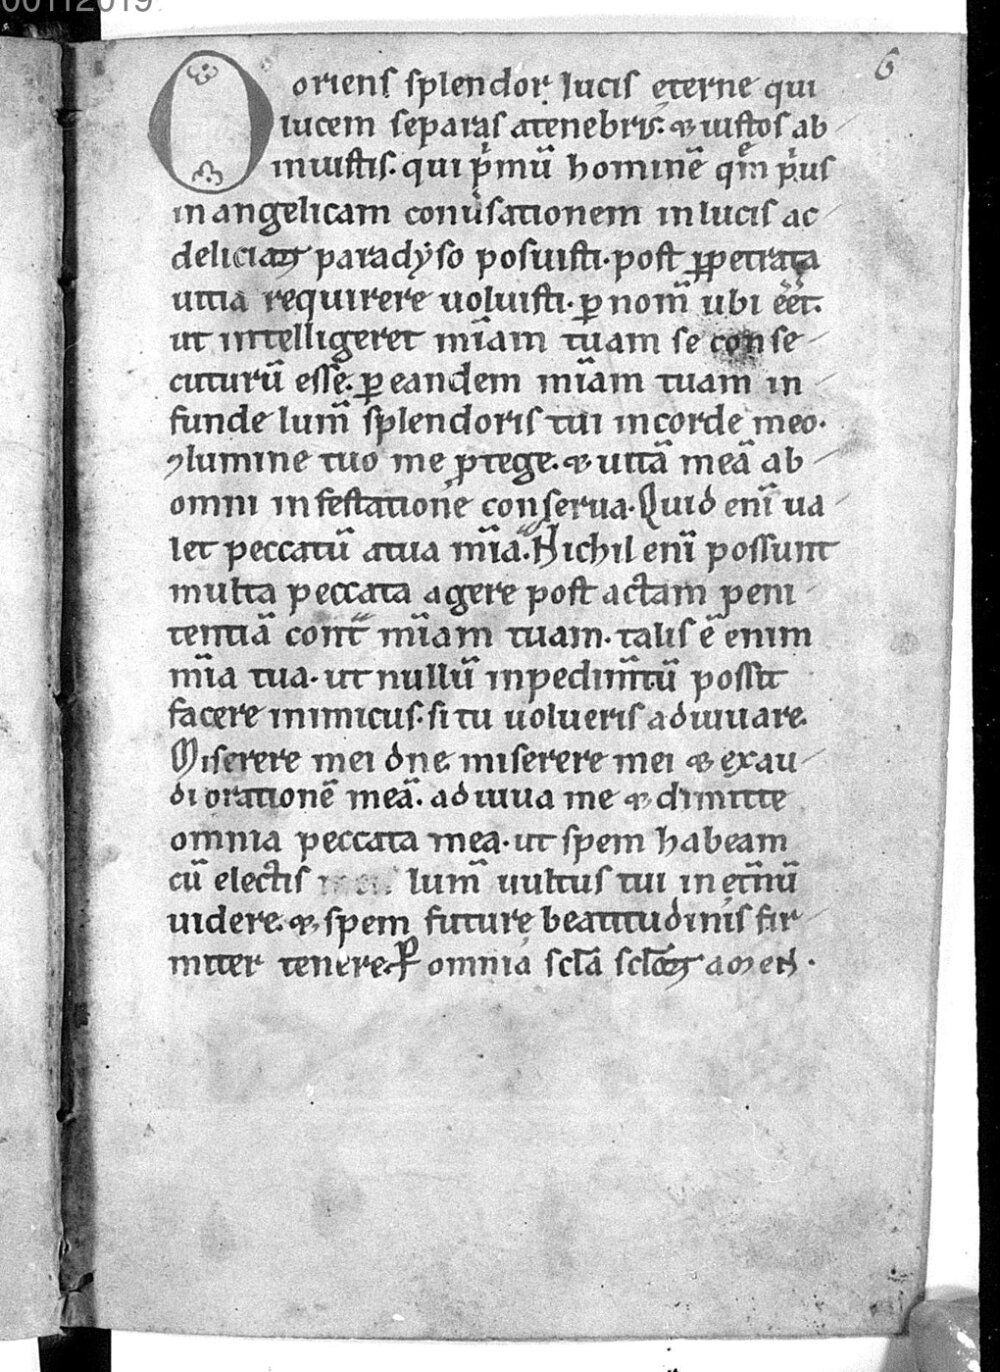 00112019
6
O oriens splendor lucis ęterne qui
lucem separas atenebris. & iustos ab
iniustis. qui p̍mū hominē quē p̍us
in angelicam conu̍sationem in lucis ac
deliciaꝝ paradẏso posuisti. post ꝑpetrata
uitia requirere uoluisti. ꝑ nom̄ ubi eēt.
ut intelligeret mīam tuam se conse
cuturū esse. ꝑ eandem mīam tuam in
funde lum̄ splendoris tui in corde meo.
⁊ lumine tuo me ꝓtege. & uitā meā ab
omni infestatione conserua. Quid eni̅ ua
let peccatū atua mīa. Nichil eni̅ possunt
multa peccata agere post actam peni
tentiā cont̄ mīam tuam. talis ē enim
mīa tua. ut nullū inpedim̄tū possit
facere inimicus. si tu uolueris adiuuare.
Miserere mei dn̄e miserere mei & exau
di orationē meā. adiuua me & dimitte
omnia peccata mea. ut spem habeam
cū electis lum̄ uultus tui in ęt̄nū
uidere. & spem futurę beatitudinis fir
miter tenere. P̱ omnia scl̄a scl̄oꝝ amen.